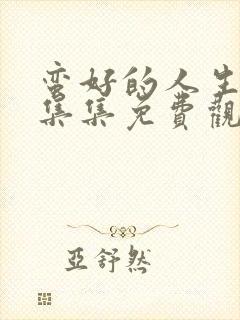 蛮好的人生
集集免費觀
亞舒然